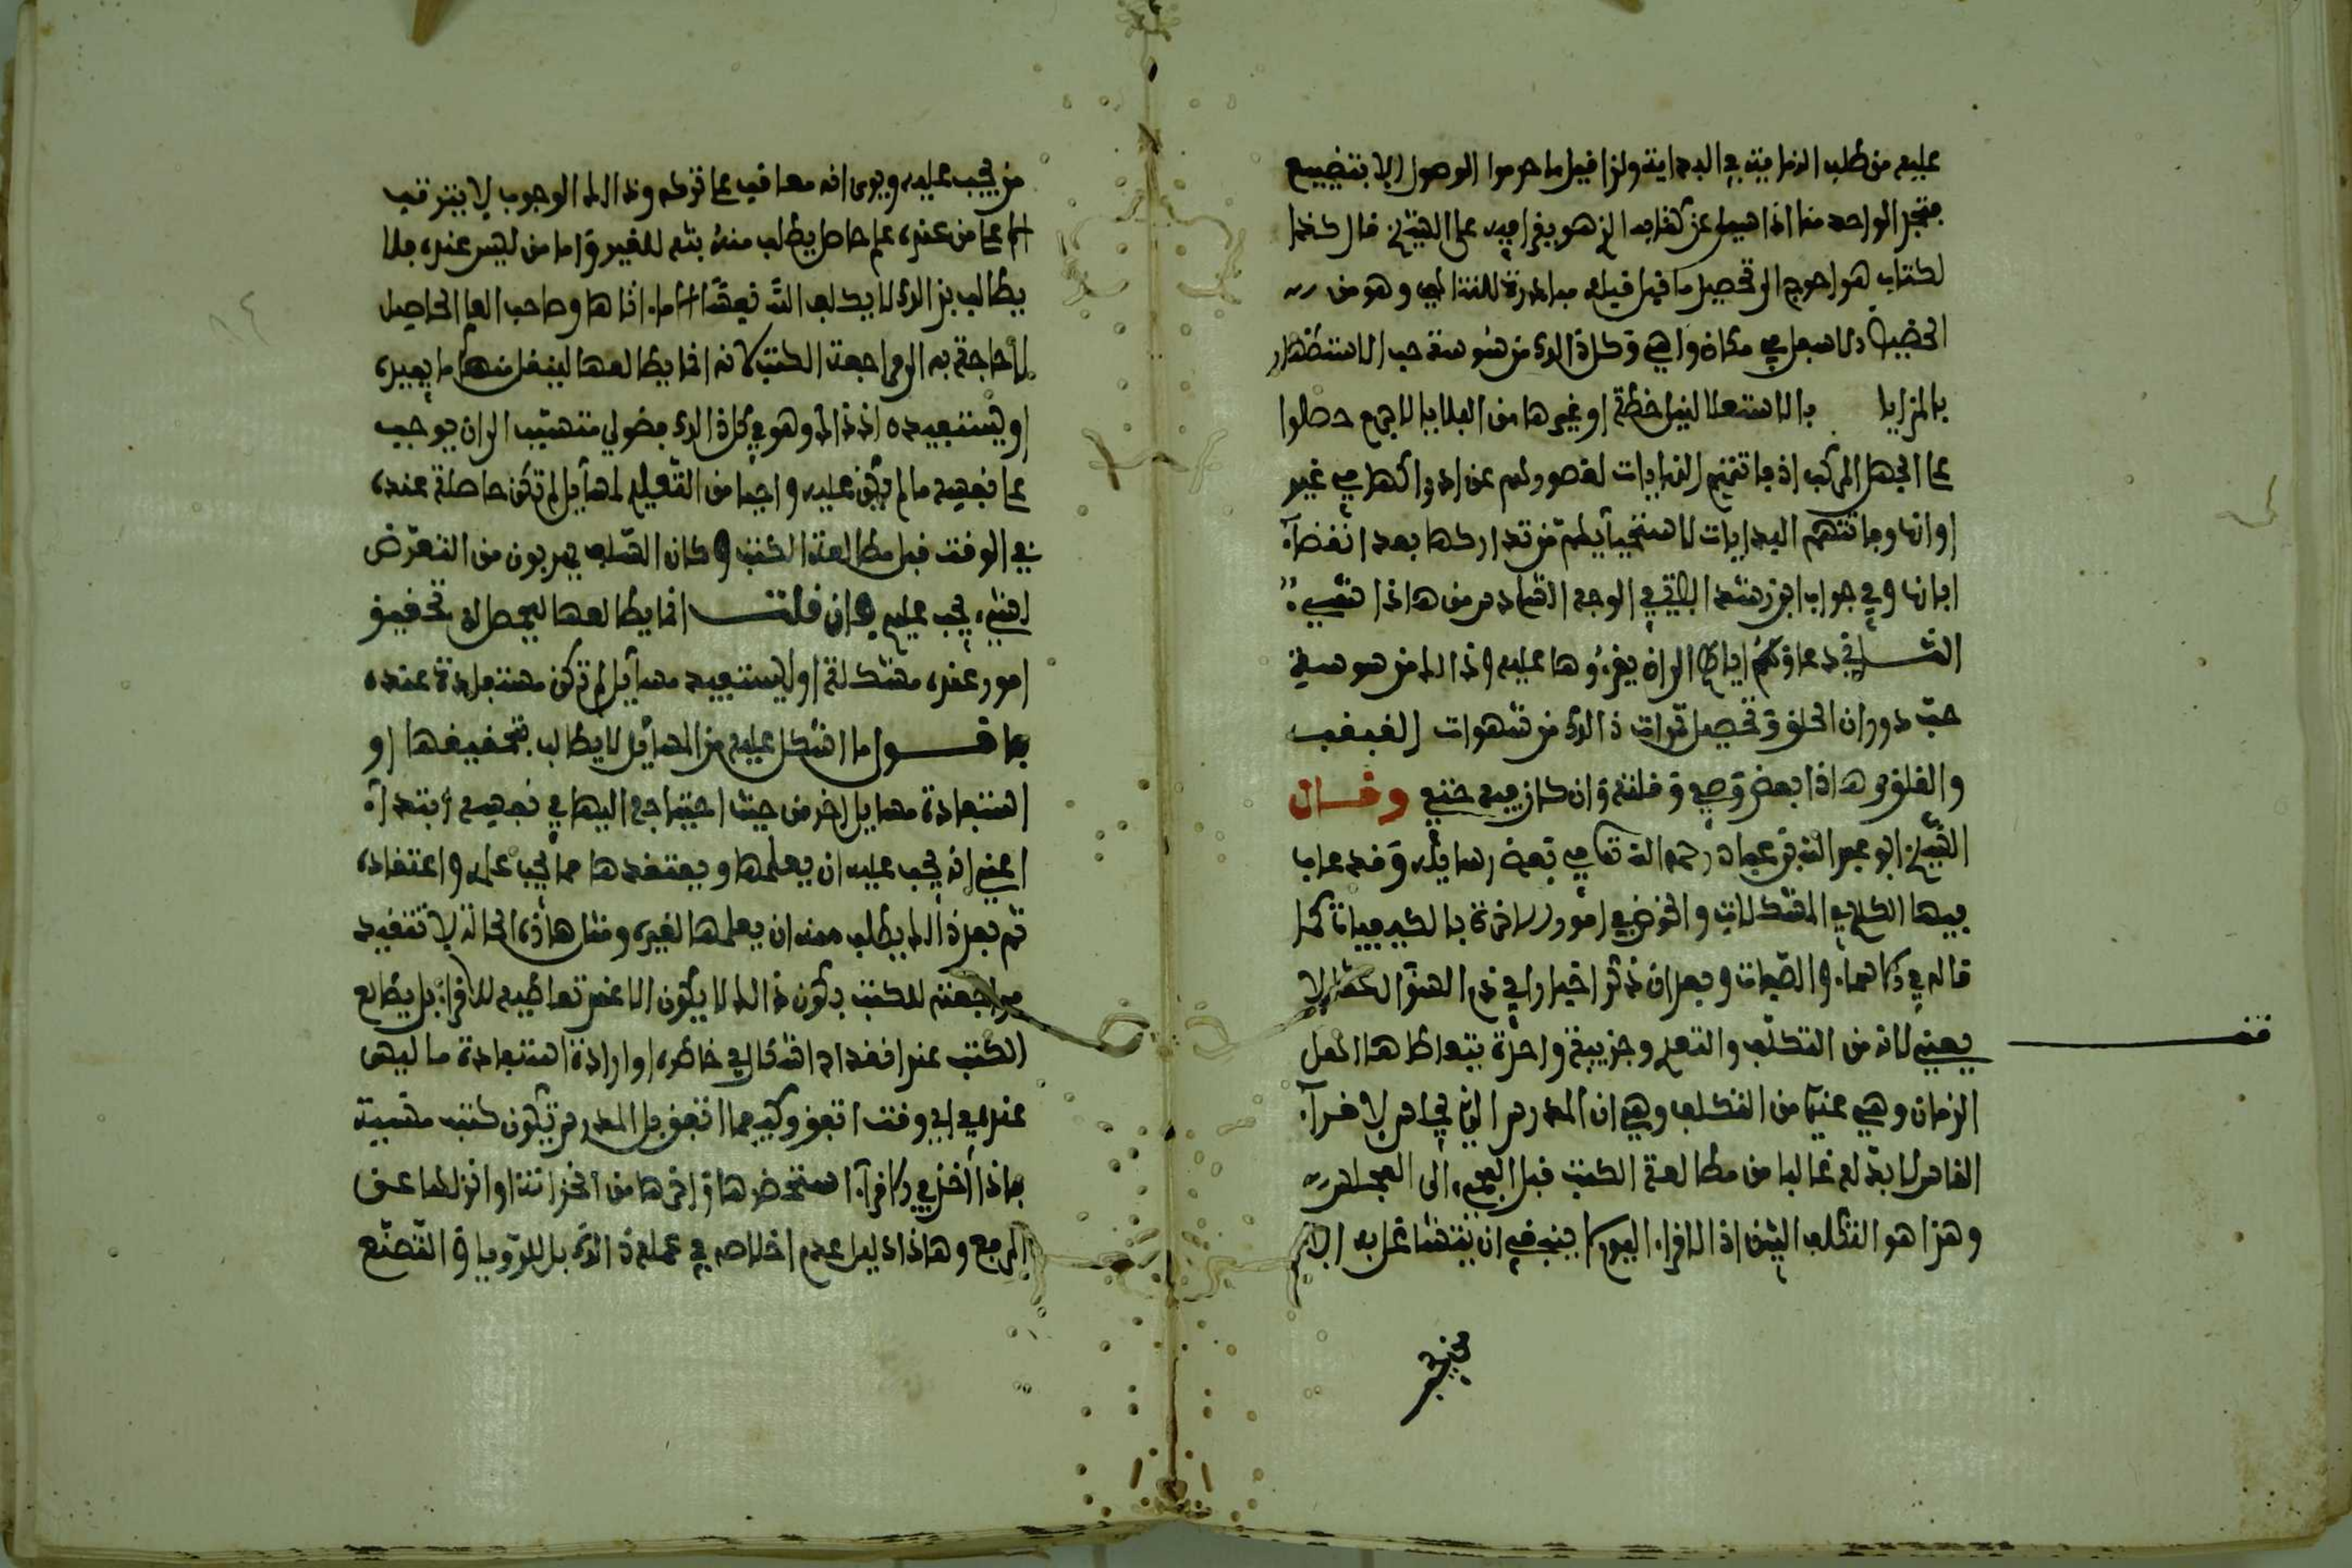 عليه من طلب النهاية في البداية ولذا قيل ما حرموا الوصول الا بتضييع
فتجد الواحد منا اذا سيل عن كتاب الذي هو يقرأ فيه على الشيخ قال كذا
لكتاب هو احوج الى تحصيل ما فيها قبله مبادرة للتتالي وهو من
الحضيض الاسفل في مكان واهي وكل ذالك من شوشة حب الاستظهار
بالمزايا بالاستعلا لنيل خطة او غيرها من البلايا لا جرم حصلوا
على الجهل المركب اذ فاتتهم النهايات لقصورهم عن ادراكها في غير
اوانها وفاتتهم البدايات لاستحيايهم من تداركها بعد انقضاء
ابانها وفي جواب ابن رشد الباقي الوجه السادس من هاذا
الشـاق دعاؤكم اياها الى ان يقرءوها عليه وذالك من سوسة
حب دوران الحلق وتحصيل ثمرات ذالك من شهوات القبقب
واللقلق هاذا بعض وصيه وقلته وان كان فيه خنى وقـال
الشيخ ابو عبد الله بن عباد رحمه الله تعالى في بعض رسايله وقد عاب
فيها الكلام في المشكلات والخوض في امور الاخرة بالكيفيات كما
قاله في الاسماء والصفات وبعد ان ذكر اخبارا في ذم السؤال
يعني لانه من التكلف والتعمق وجزيية واحدة يتعاطاها اهل
قف
الزمان وهي عندي من التكلف وهي ان المدرس الذي يجلس لاقراء
الناس لا بد له غالبا من مطالعة الكتب قبل المجيء الى المجلس
وهذا هو التكلف البين اذ الاقراء انما ينبغي ان يتشاغل به
من يجب عليه ويرى انه معاقب على تركه وذالك الوجوب لا يترتب
الا على من عنده علم حاصل يطلب منه بثه للغير واما من ليس عنده فلا
يطالب به اذ لا يكلف الله نفسا الا ما اتاها وصاحب العلم الحاصل
لا حاجة به الى مراجعة الكتب لانه انما يطالعها لينقل منها ما يفيده
او يستفيده اذ ذاك وهو في كل ذالك فضولي متسبب الى ان يوجب
على نفسه ما لم يكن عليه واجبا من التعليم لمسايل لم تكن حاصلة عنده
في الوقت قبل مطالعة الكتب وكان السلف يهربون من التعرض
لشيء يجب عليهم وان قلـت انما يطالعها ليحصل له تحقيق
امور عنده مشكلة او ليستفيد مسايل لم تكن مستفادة عنده
فاقـول ما اشكل عليه من المسايل لا يطالب بتحقيقها او
استفادة مسايل اخر من حيث احتياجه اليها في نفسه ابتداء
اعني انه يجب عليه ان يعلمها ويعتقدها مما يجب علمه واعتقاده
ثم بعد ذالك يطلب منه ان يعلمها لغيره ومثل هاذه الحالة لا تتقيد
مراجعته للكتب بكون ذالك لا يكون الا عند تعاطيه للاقراء بل يطالع
الكتب عند انقداح اشكال في خاطره او ارادة استفادة ما ليس
عنده في اي وقت اتفق وكيفما اتفق بل المدرس تكون كتبه مشبية
فاذا اخذ في الاقراء استحضرها واخرجها من الخزانة او انزلها عن
المرفع وهاذا دليل عدم اخلاصه في عمله ذالك بل للرويا والتصنع